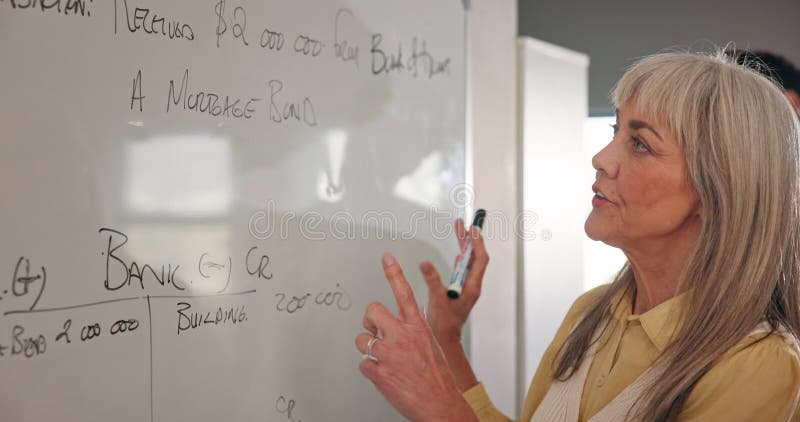 RECEIVED $2 000 000 from Bank of
A MORTGAGE BOND
(+) BANK (-) CR
BOND 2 000 000 BUILDING. 200 000
CR
dreamstime